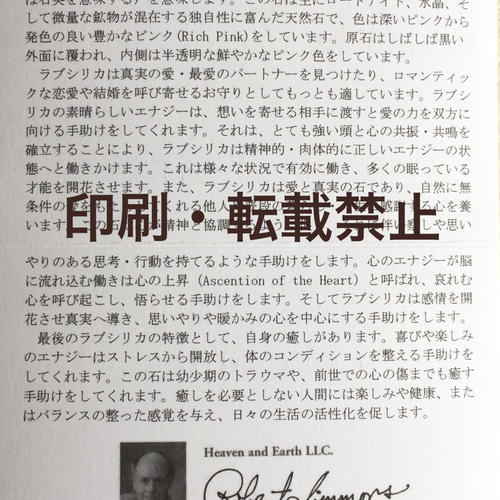 は石英を意味する
して微量な鉱物が混在する独自性に富んだ天然石で、色は深いピンクから
発色の良い豊かなピンク(Rich Pink)をしています。原石はしばしば黒い
外面に覆われ、内側は半透明な鮮やかなピンク色をしています。
ラブシリカは真実の愛・最愛のパートナーを見つけたり、ロマンティッ
クな恋愛や結婚を呼び寄せるお守りとしてもっとも適しています。ラブシ
リカの素晴らしいエナジーは、想いを寄せる相手に渡すと愛の力を双方に
向ける手助けをしてくれます。それは、とても強い頭と心の共振・共鳴を
確立することにより、ラブシリカは精神的・肉体的に正しいエナジーの状
態へと働きかけます。これは様々な状況で有効に働き、多くの眠っている
才能を開花させます。また、ラブシリカは愛と真実の石であり、自然に無
条件の
くれる他人
する心を養
印刷・転載禁止
います。
精神と協調
思い
やりのある思考・行動を持てるような手助けをします。心のエナジーが脳
に流れ込む働きは心の上昇 (Ascention of the Heart) と呼ばれ、哀れむ
心を呼び起こし、悟らせる手助けをします。そしてラブシリカは感情を開
花させ真実へ導き、思いやりや暖かみの心を中心にする手助けをします。
最後のラブシリカの特徴として、自身の癒しがあります。喜びや楽しみ
のエナジーはストレスから開放し、体のコンディションを整える手助けを
してくれます。この石は幼少期のトラウマや、前世での心の傷までも癒す
手助けをします。癒しを必要としない人間には楽しみや健康、また
はバランスの整った感覚を与え、日々の生活の活性化を促します。
Heaven and Earth LLC.
Robert Simmons